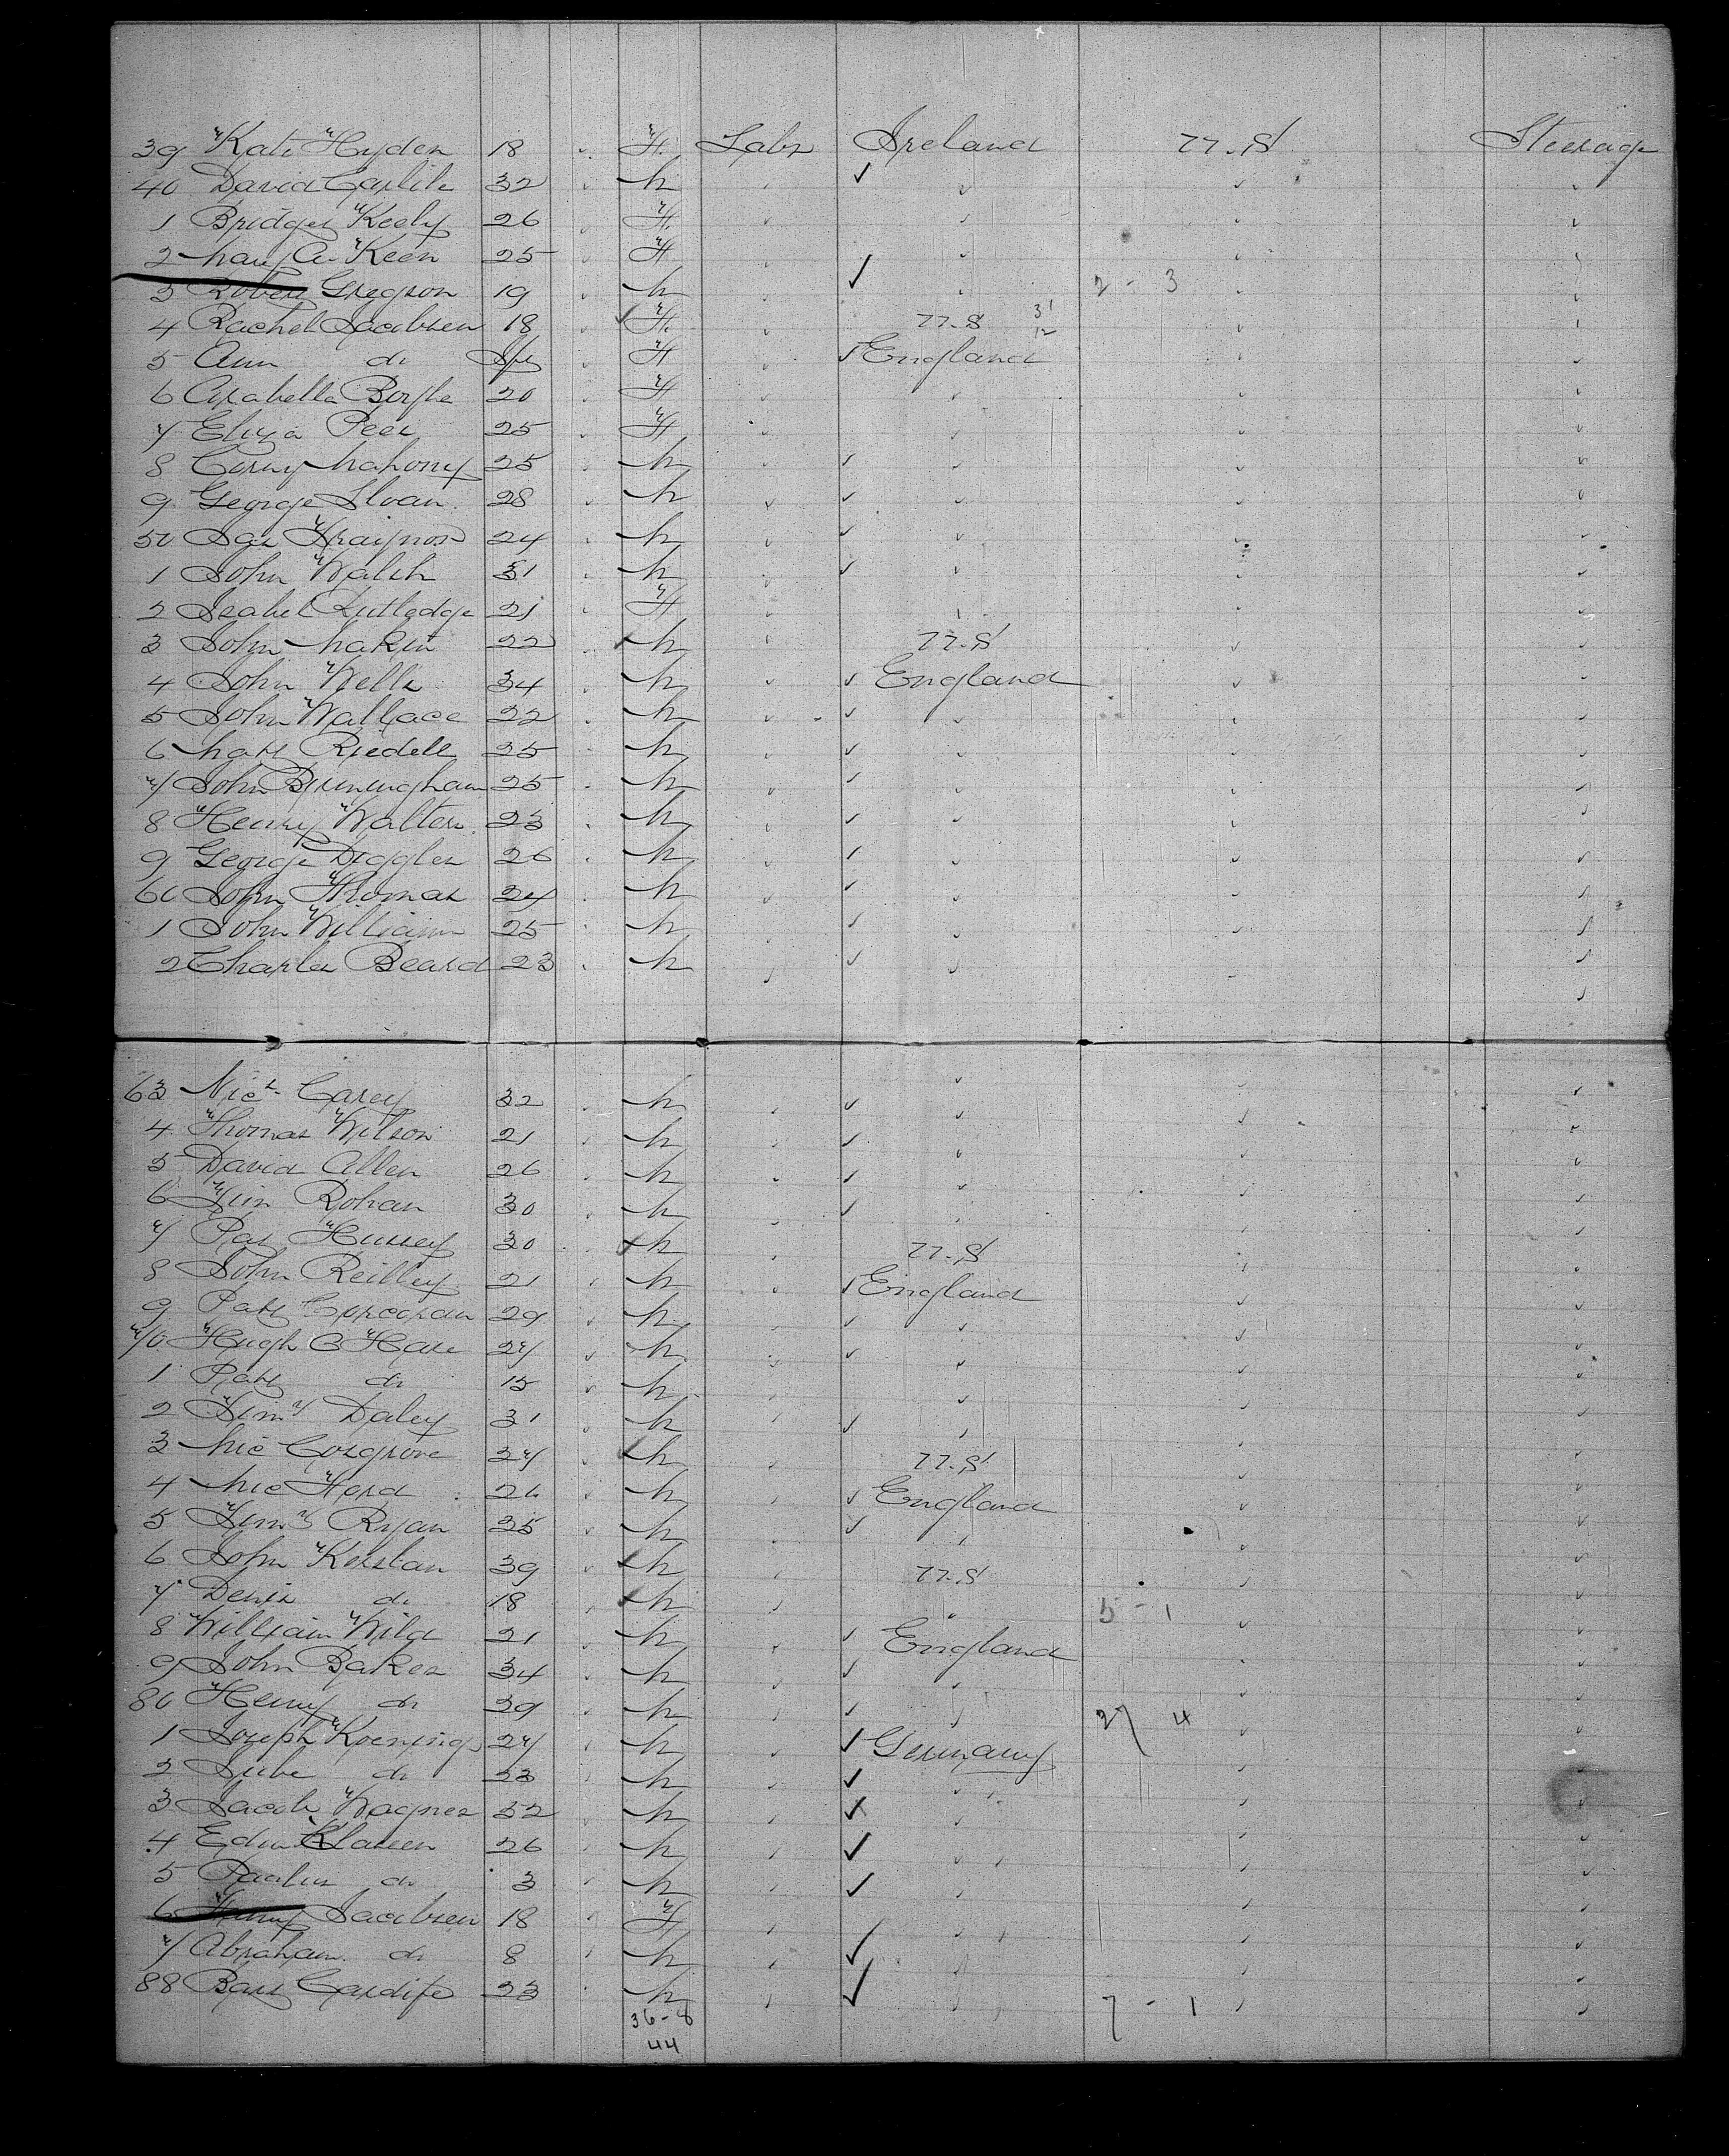 39 Kate Hyden 18 " F. Labr Ireland U.S Steerage
40 David Carlile 32 " M " ✓ " " "
1 Bridget Keely 26 " F. " " " "
2 Mary A. Keen 25 " F " " " "
3 Robert Gregson 19 " M " ✓ " 2 - 3 " "
4 Rachel Jacobsen 18 " F. " U.S " "
5 Ann do " F " ✓ England " "
6 Arabella 20 " F " " " "
7 Eliza Peel 25 " F " " " "
8 Mahony 25 " M " ✓ " " "
9 George Sloan 28 " M " ✓ " " "
50 Jas 24 " M " ✓ " " "
1 John Walsh 31 " M " ✓ " " "
2 Isabel Rutledge 21 " F " " " "
3 John Makin 22 " M " U.S " "
4 John Wells 34 " M " ✓ England " "
5 John Wallace 22 " M " ✓ " " "
6 Riedell 25 " M " ✓ " " "
7 John 25 " M " ✓ " " "
8 Henry Walters 23 " M " ✓ " " "
9 George Diggles 26 " M " ✓ " " "
60 John Thomas 24 M " ✓ " " "
1 John Williams 25 " M " ✓ " " "
2 Charles Beard 23 " M " ✓ " " "
63 Carey 32 " M " ✓ " " "
4 Thomas Wilson 21 " M " ✓ " " "
5 David Allen 26 " M " ✓ " " "
6 Tim Rohan 30 " M " ✓ " " "
7 Pat Hussey 30 " M " U.S " "
8 John Reilley 21 " M " ✓ England " "
9 Patk Corcoran 29 " M " ✓ " " "
70 Hugh O Hare 27 " M " ✓ " " "
1 Patk do 15 " M " " " "
2 Timy Daley 31 " M " ✓ " " "
3 Mic Cosgrove 27 " M " U.S " "
4 Mic 26 " M " ✓ England " "
5 Timy Ryan 25 " M " ✓ " " "
6 John 39 " M " U.S " "
7 Denis do 18 " M " " 5 - 1 " "
8 William Wild 21 " M " ✓ England " "
9 John Baker 34 " M " ✓ " " "
80 Henry do 39 " M " ✓ " 27 4 " "
1 Joseph Koenings 27 " M " ✓ Germany " "
2 do 23 " M " ✓ " " "
3 Jacob Wagner 32 " M " ✓ " " "
4 Klasen 26 " M " ✓ " " "
5 do 3 " M " ✓ " " "
6 Jacobsen 18 " F " " " "
7 Abraham do 8 " M " ✓ " " "
88 Cardife 23 " M " ✓ " 7 - 1 " "
36 - 8
44